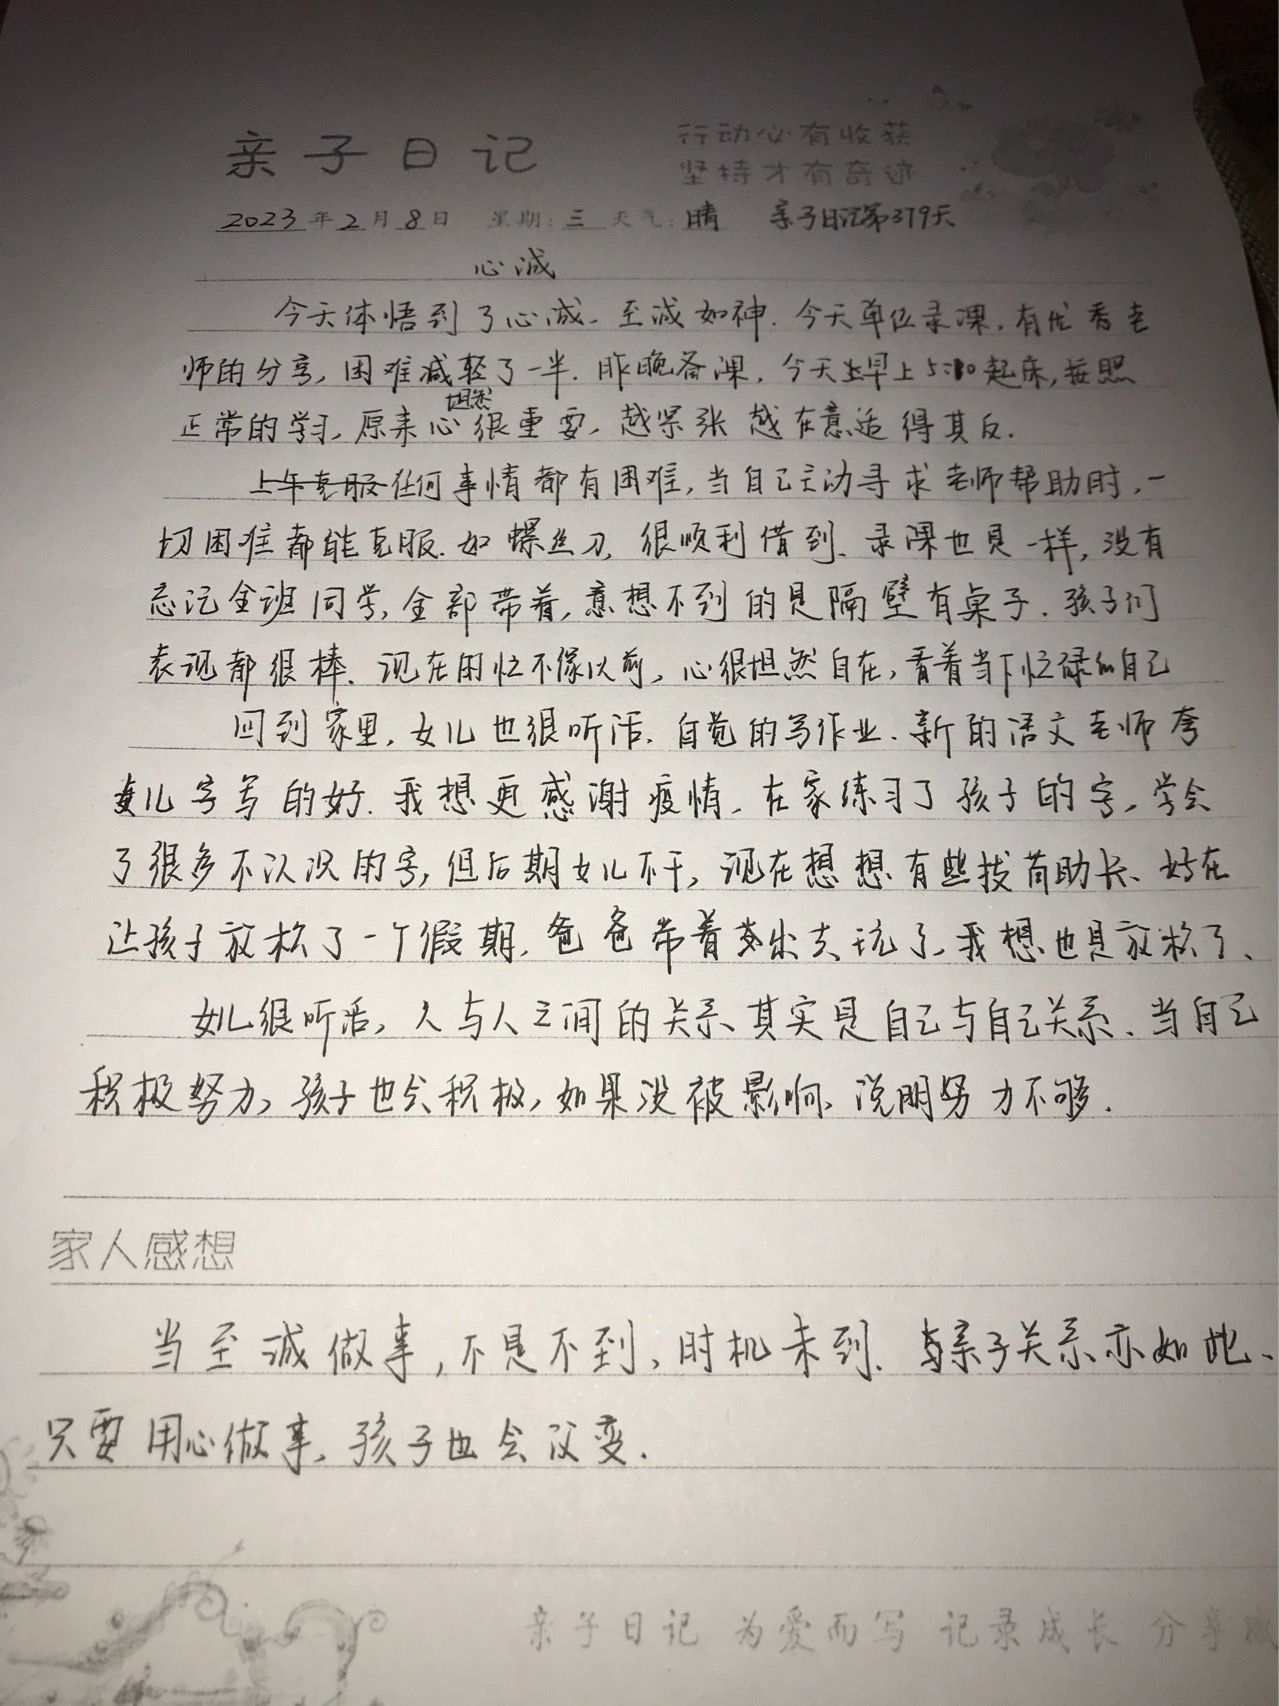 亲子日记
行动必有收获
坚持才有奇迹
2023年2月8日 星期:三 天气:晴 亲子日记第379天
心诚
今天体悟到了心诚、至诚如神.今天单位录课,有优秀老
师的分享,困难减轻了一半.昨晚备课,今天早上5:30起床,按照
正常的学习,原来心坦然很重要,越紧张越在意适得其反.
上午克服任何事情都有困难,当自己主动寻求老师帮助时,一
切困难都能克服.如螺丝刀,很顺利借到.录课也是一样,没有
忘记全班同学,全部带着,意想不到的是隔壁有桌子.孩子们
表现都很棒.现在的忙不像以前,心很坦然自在,看着当下忙碌的自己
回到家里,女儿也很听话.自觉的写作业.新的语文老师夸
女儿字写的好.我想更感谢疫情,在家练习了孩子的字,学会
了很多不认识的字,但后期女儿不干,现在想想有些拔苗助长、好在
让孩子放松了一个假期,爸爸带着出去玩了,我想也是放松了、
女儿很听话,人与人之间的关系其实是自己与自己关系、当自己
积极努力,孩子也会积极,如果没被影响,说明努力不够.
家人感想
当至诚做事,不是不到,时机未到.与亲子关系亦如此、
只要用心做事,孩子也会改变.
亲子日记 为爱而写 记录成长 分享